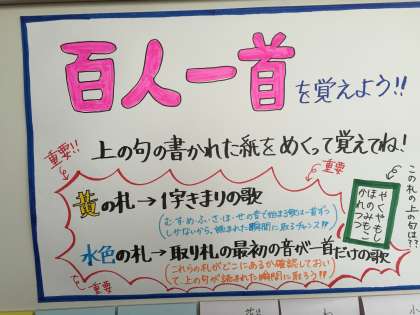 百人一首を覚えよう!!
上の句の書かれた紙をめくって覚えてね!
重要!!
重要
黄の札→1字きまりの歌
(むすめふさほせの音で始まる歌は一首ずつ
しかないから、読まれた瞬間に取るチャンス!!)
水色の札→取り札の最初の音が一首だけの歌
(これらの札がどこにあるか確認しておい
て上の句が読まれた瞬間に取ろう!!)
重要
この札の上の句は??
やくやもし
ほのみつもこ
かれつ